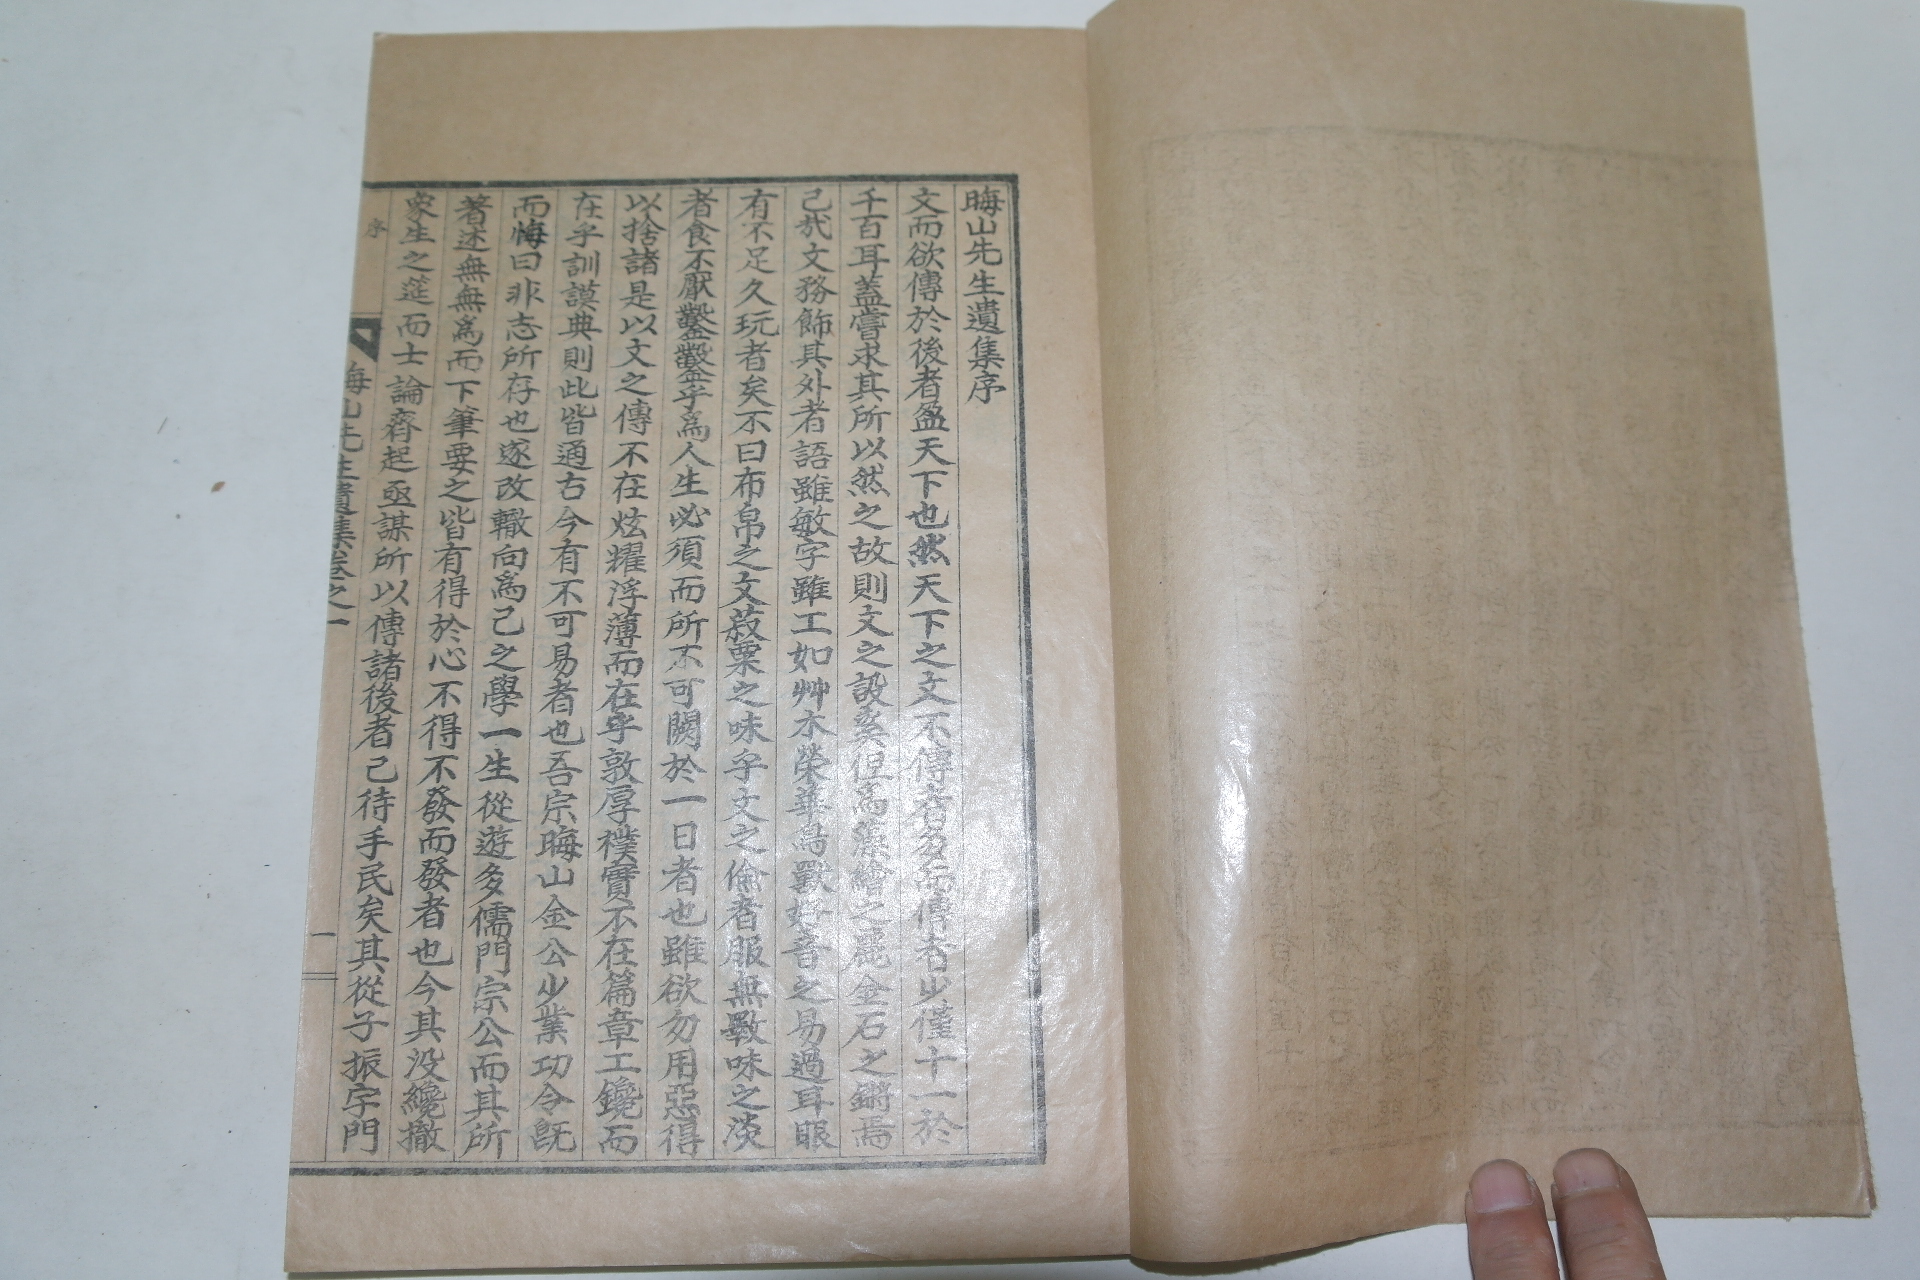 晦山先生遺集序
文而欲傳於後者盈天下也然天下之文不傳者多而傳者少僅十一於
千百耳蓋嘗求其所以然之故則文之設奚但爲藻繪之麗金石之鏘焉
己哉文務飾其外者語雖敏字雖工如艸木榮華鳥獸好音之易過耳眼
有不足久玩者矣不曰布帛之文菽粟之味乎文之倫者服無斁味之淡
者食不厭鑿鑿乎爲人生必須而所不可闕於一日者也雖欲勿用惡得
以捨諸是以文之傳不在炫耀浮薄而在乎敦厚樸實不在篇章工鑱而
在乎訓謨典則此皆通古今有不可易者也吾宗晦山金公少業功令旣
而悔曰非志所存也遂改轍向爲己之學一生從遊多儒門宗公而其所
著述無無爲而下筆要之皆有得於心不得不發而發者也今其沒纔撤
象生之筵而士論齊起亟謀所以傳諸後者己待手民矣其從子振宇門
序
晦山先生遺集卷之一
一